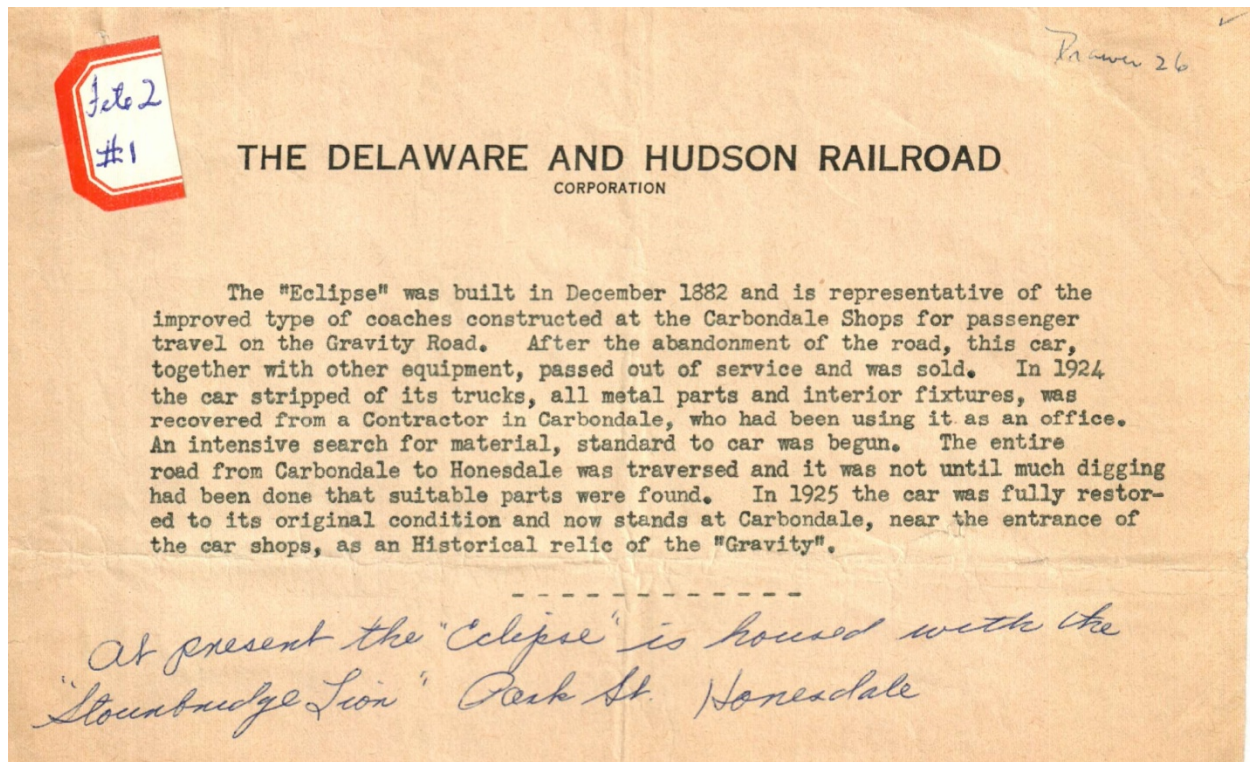 Drawer 26
File 2
#1
THE DELAWARE AND HUDSON RAILROAD
CORPORATION
The "Eclipse" was built in December 1882 and is representative of the
improved type of coaches constructed at the Carbondale Shops for passenger
travel on the Gravity Road. After the abandonment of the road, this car,
together with other equipment, passed out of service and was sold. In 1924
the car stripped of its trucks, all metal parts and interior fixtures, was
recovered from a Contractor in Carbondale, who had been using it as an office.
An intensive search for material, standard to car was begun. The entire
road from Carbondale to Honesdale was traversed and it was not until much digging
had been done that suitable parts were found. In 1925 the car was fully restor-
ed to its original condition and now stands at Carbondale, near the entrance of
the car shops, as an Historical relic of the "Gravity".
At present the "Eclipse" is housed with the
"Stourbridge Lion" Park St. Honesdale